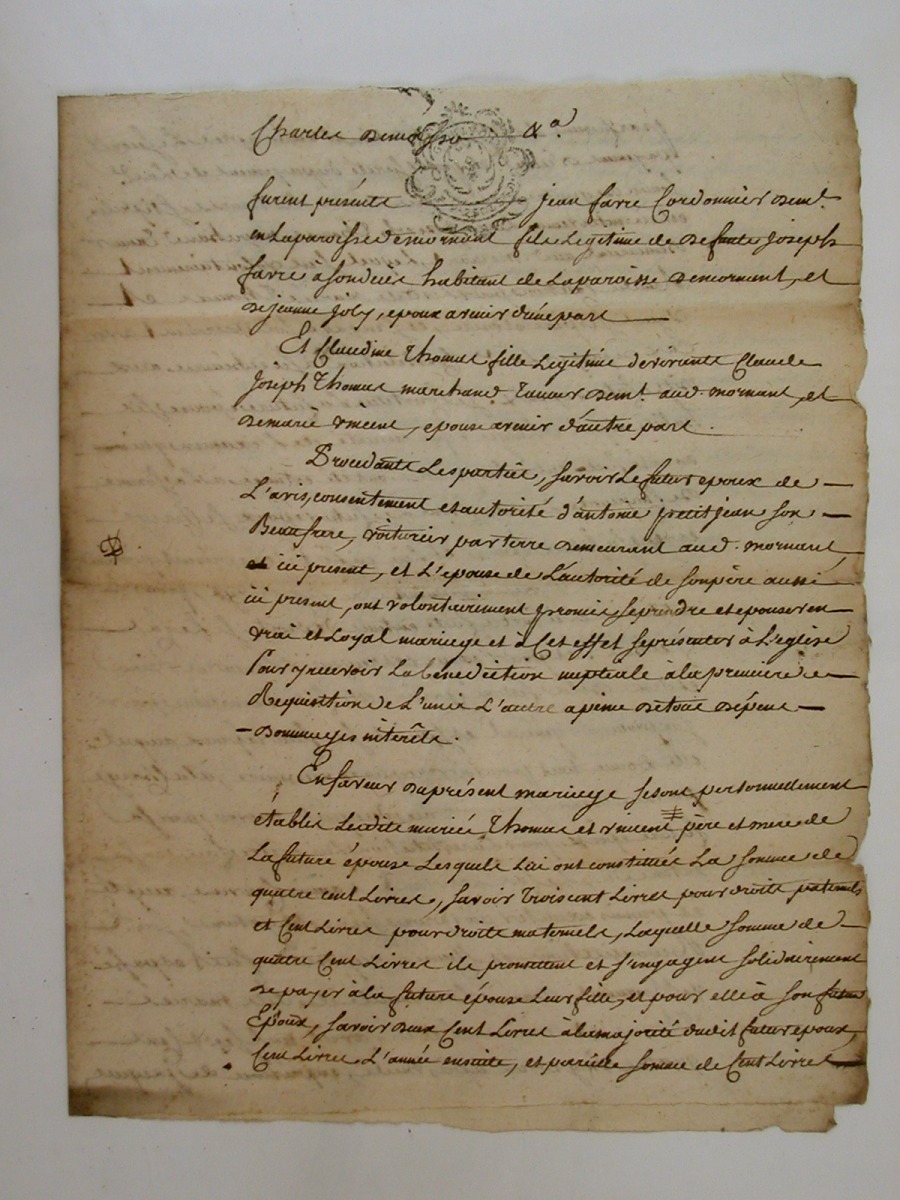 Charles
furent présents jean favre Cordonnier dem.t
en Laparoisse demornant fils Legitime de defunts joseph
favre habitant de Laparoisse demornant, et
dejeanne joly, epoux avenir d'une part
Et Claudine Thomas fille Legitime devivants Claude
joseph Thomas marchand dem.t aud. mornant, et
demarie vincent, epouse avenir d'autre part.
Procedants Lesparties, savoir Lefutur epoux de
L'avis, consentement etautorité d'antoine petitjean son
Beaufrere, voiturier par terre demeurant aud. mornant
ici present, et L'epouse de L'autorité de sonpère aussi
ici present, ont volontairement promis seprendre et epouser en
vrai et Loyal mariage et à Cet effet seprésenter à L'eglise
Pour y recevoir La bénédiction nuptiale à la premiere
Requisition de L'un à L'autre apeine detous dépens
dommages interêts.
Enfaveur duprésent mariage sesont personnellement
établis Lesdits mariés Thomas et vincent père et mere de
La future épouse Lesquels Lui ont constitués La somme de
quatre cent Livres, savoir trois cent Livres pour droits paternels
et Cent Livres pour droits maternels, Laquelle somme de
quatre Cent Livres ils promettent et s'engagent solidairement
de payer à la future épouse Leur fille, et pour elle à son futur
Epoux, savoir deux Cent Livres à la majorité dudit futur epoux,
Cent Livres L'année ensuite, et pareille somme de Cent Livres